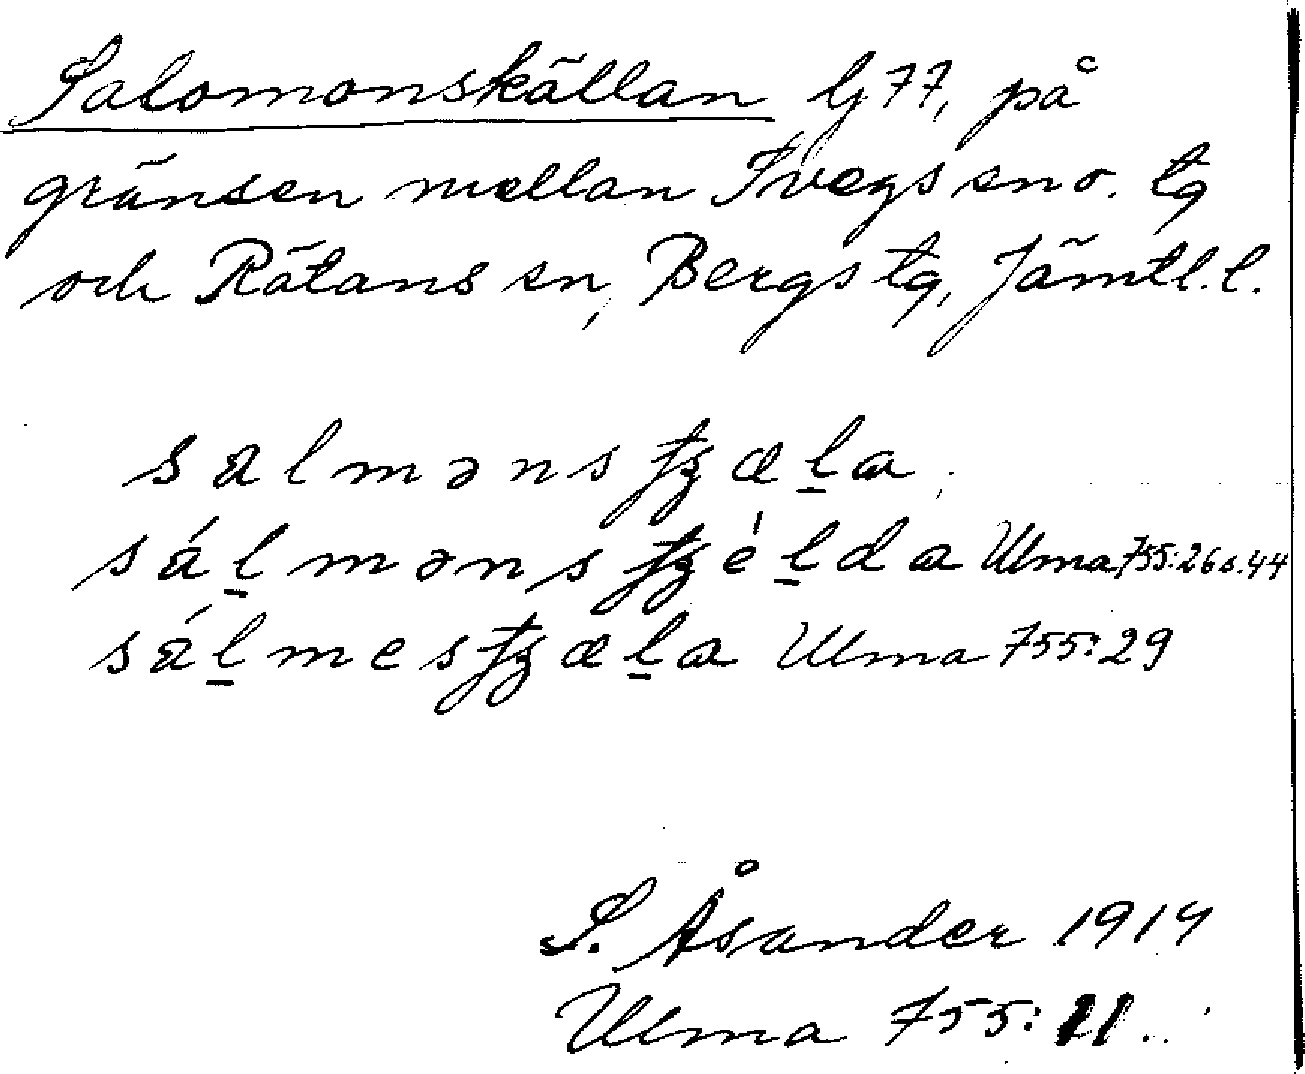 Salomonskällan lj 77, på
gränsen mellan Svegs sn o. tg
och Rätans sn, Bergs tg, Jämtl.l.
salmənsʈʒæl̲a
sál̲mənsʈʒél̲da Ulma 755:26 o. 44
sál̲mesʈʒæl̲a Ulma 755:29
S. Åsander 1914
Ulma 755:11.